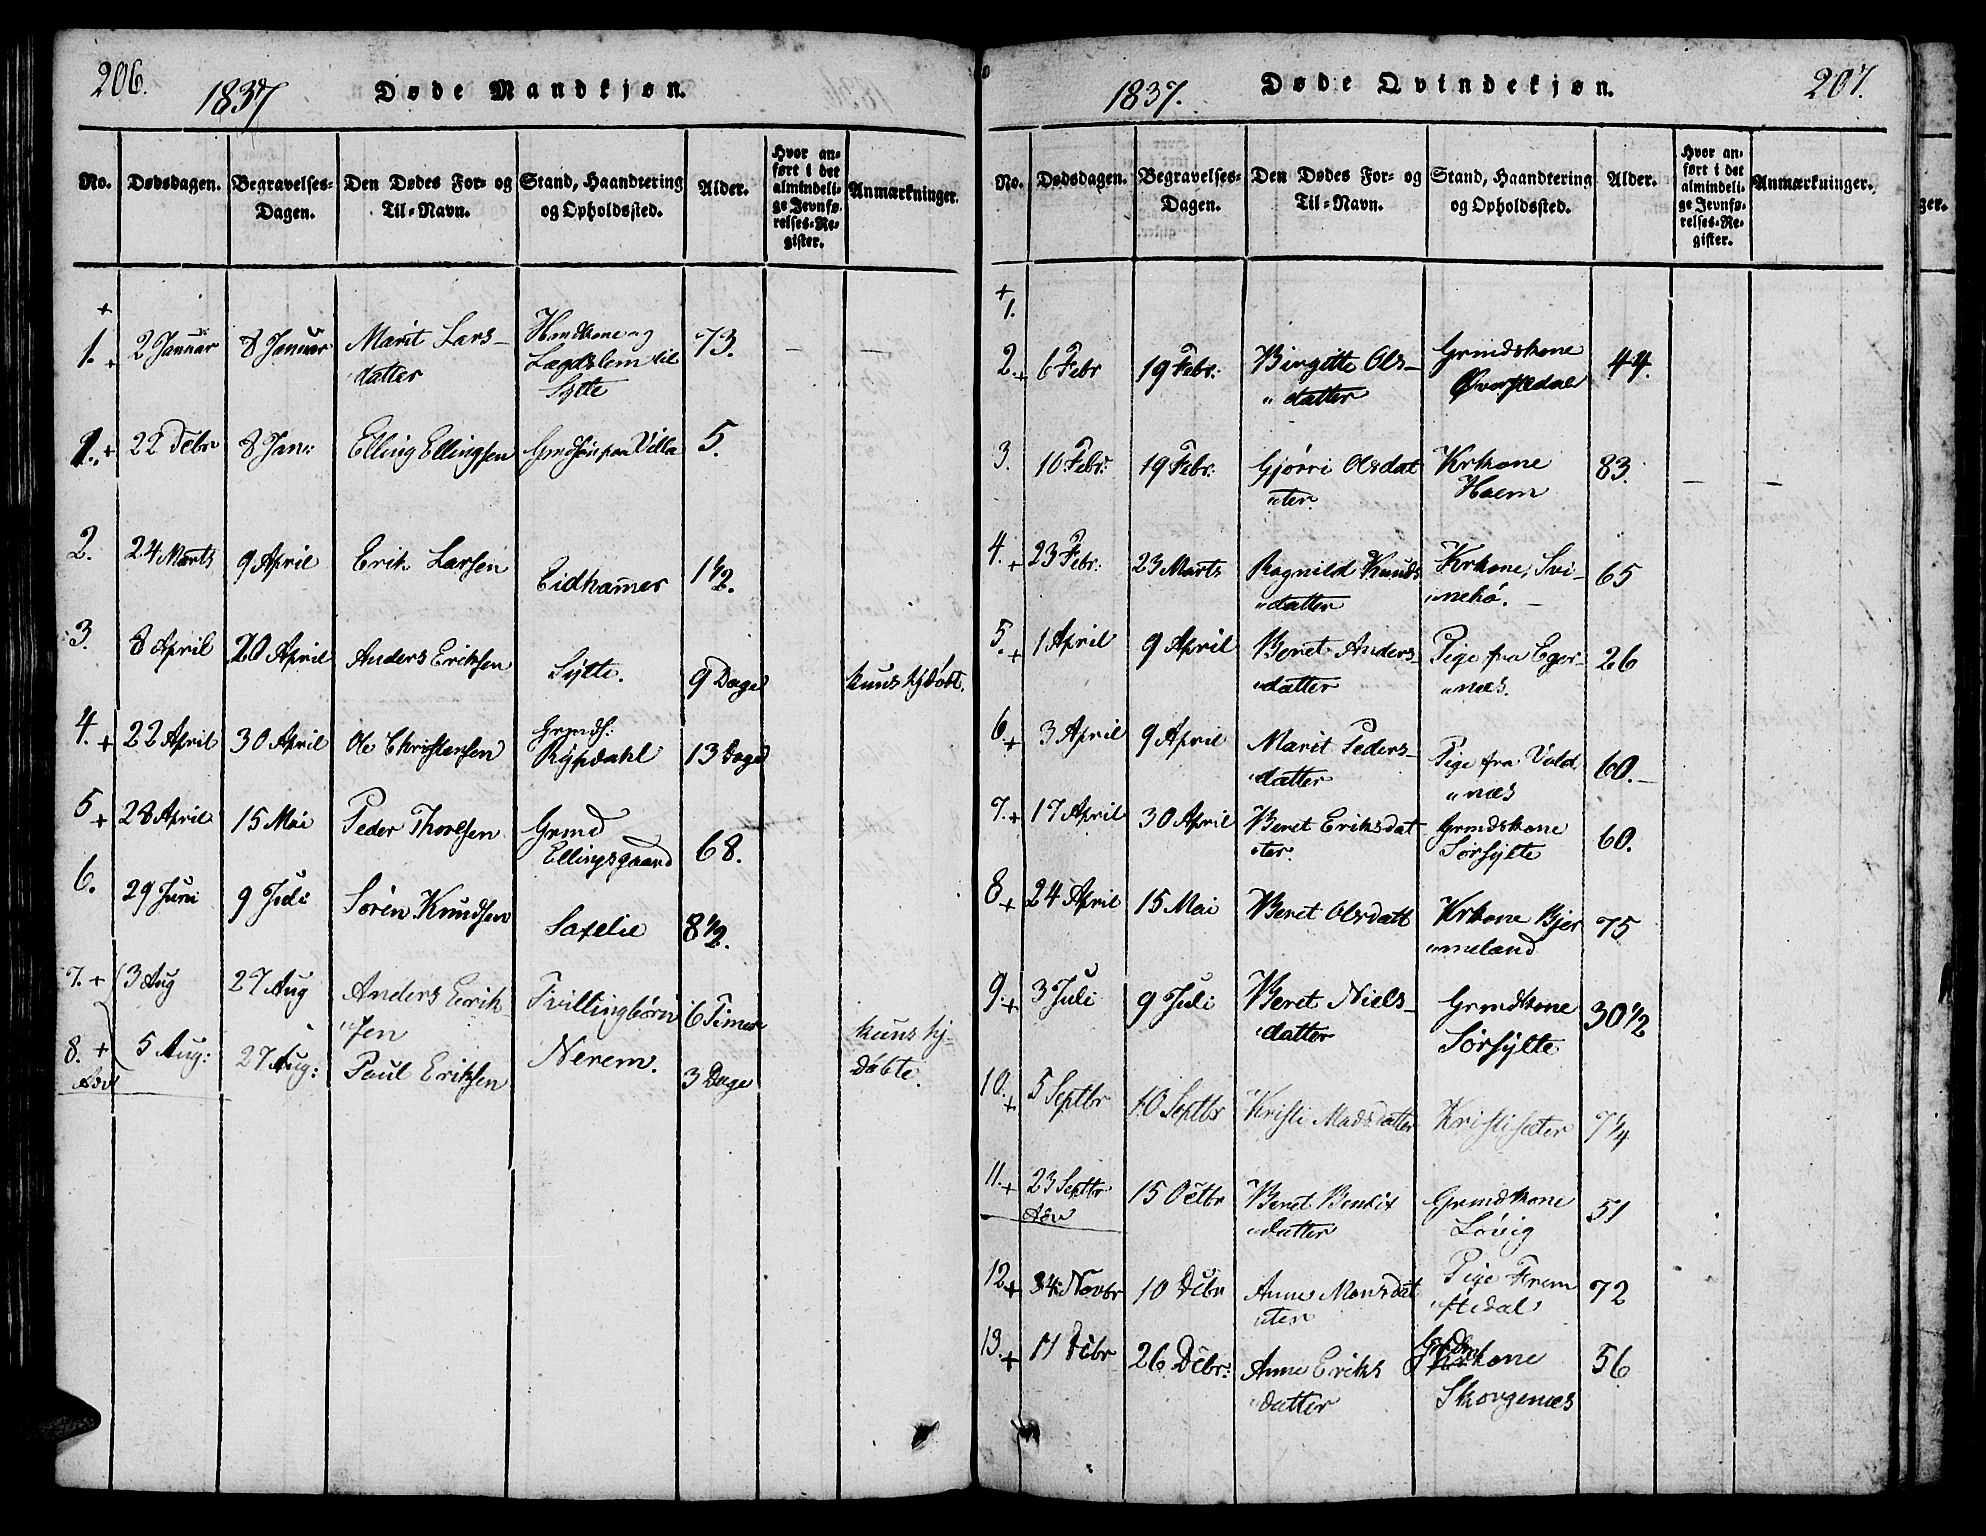 206.
1837
Døde Mandkjøn.
No.
Dødsdagen.
Begravelses-
Dagen.
Den Dødes For- og
Til-Navn.
Stand, Haandtering
og Opholdssted.
Alder.
Hvor an-
ført i det
almindeli-
ge Jevnfø-
relses-Re-
gister.
Anmærkninger.
+
1. + 2 Januar 8 Januar Marit Lars- 73. — —
datter
Lægdslem til
Sylte
1. + 22 Debr 8 Jan: Elling Ellingsen Villa 5.
2. 24 Marts 9 April Erik Larsen Eidhamer 1½.
3. 8 April 20 April Anders Eriksen Sylte. 9 Dage kuns hjdøbt.
4. + 22 April 30 April Ole Christensen Grmds: 13 Dage
Rypdahl
5 + 28 April 15 Mai Peder Thoresen Grmd 68.
Ellingsgaard
6. 29 Juni 9 Juli Sören Knudsen Saxelie 8½.
7. + 3 Aug 27 Aug Anders Erik- Tvillingbørn 6 Timer
"sen kuns hj-
8. + 5 Aug: 27 Aug: Paul Eriksen Nerem. 3 Dage døbte.
Adv
1837.
Døde Qvindekjøn.
207.
No.
Dødsdagen.
Begravelses-
Dagen.
Den Dødes For- og
Til-Navn.
Stand, Haandtering
og Opholdssted.
Alder.
Hvor an-
ført i det
almindeli-
ge Jevnfø-
relses-Re-
gister.
Anmærkninger.
+
1.
2. + 6 Febr 19 Febr: Birgitte Ols- Grmdskone 44.
"datter
3. 10 Febr: 19 Febr: Gjørri Olsdat Krkone 83. — —
"ter. Haem
4. + 23 Febr: 23 Marts Ragnild Knuds Krkone, Svi-
65
"datter "nehö.
5. + 1 April 9 April Beret Anders- Pige fra Eger- 26
"datter "næs.
6. + 3 April 9 April Marit Peders- Pige fra Vold, 60.
"datter "næs
7. + 17 April 30 April Beret Eriksdat- Grmdskone 60.
"ter. Sørsylte
8 + 24 April 15 Mai Beret Olsdatt Krkone Bjer 75
"meland
9. + 3 Juli 9 Juli Beret Niels- Grmdskone 30½
"datter Sørsylte
10. + 5 Septbr 10 Septbr Kristi Madsdatter Kristisæter 7¼
11. + 23 Septbr 15 Octbr Beret Bendix Grmdskone 51
Adv "datter Løvig
12 + Novbr 10 Debr Anne Monsdat Pige Frem 72
"ter "stedal
13. + 17 Debr 26 Debr: Anne Eriks kone 56
"datter Skorgenæs